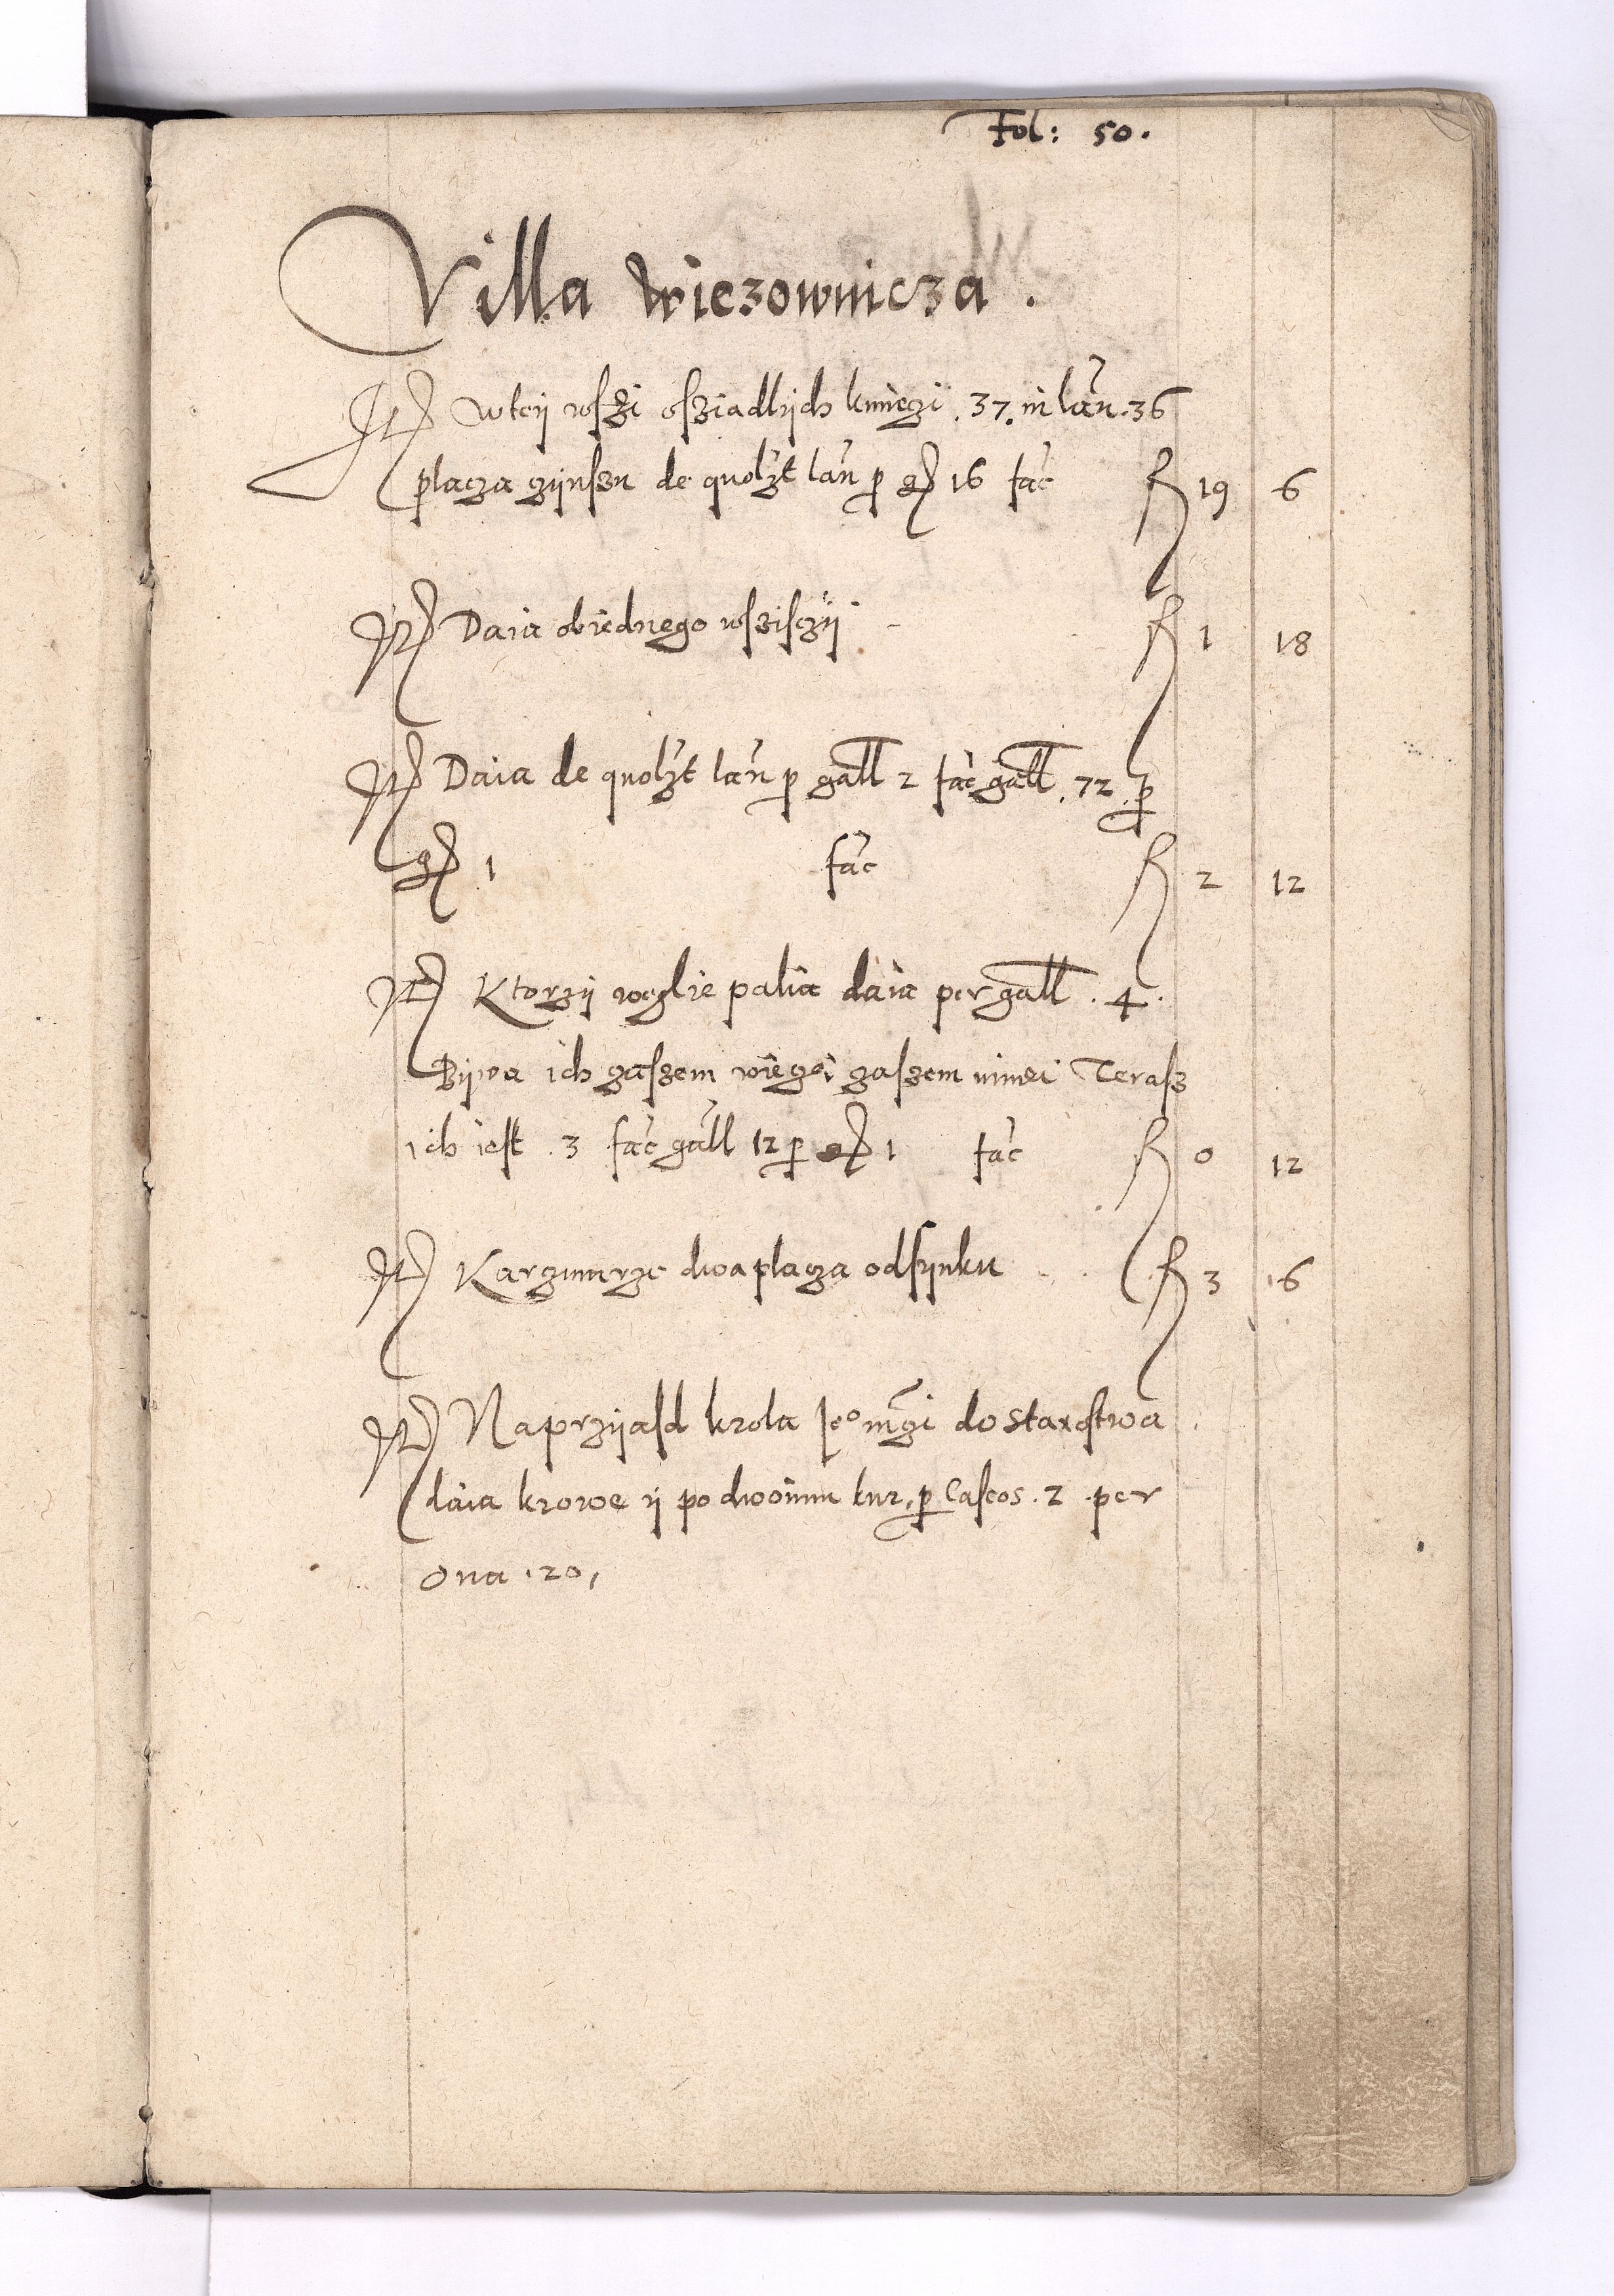 Fol: 50.
Villa Wiezownicza.
It wteÿ wſzi oſziadlÿch kmiezi .37. in lan .36
placza zÿnſzu de quolzt lan p gr 16 fac fl 19 6
It Daia obiednego wſziſczÿ fl 1 18
It Daia de quolzt lan p gall 2 fac gall .72 p
gr 1 fac fl 2 12
It Ktorzÿ weglie palia daia per gall .4.
Bÿwa ich zaſzem wiezei zaſzem mniei Teraſz
ich ieſt .3 fac gall 12 p gr 1 fac fl 0 12
It Karzmerze dwa placza odſzÿnku fl 3 16
It Na przÿaſd krola Jeo mczi do Staroſtwa
daia krowe ÿ po dwoimu kur, p Caſeos .2 per
Ova .20,